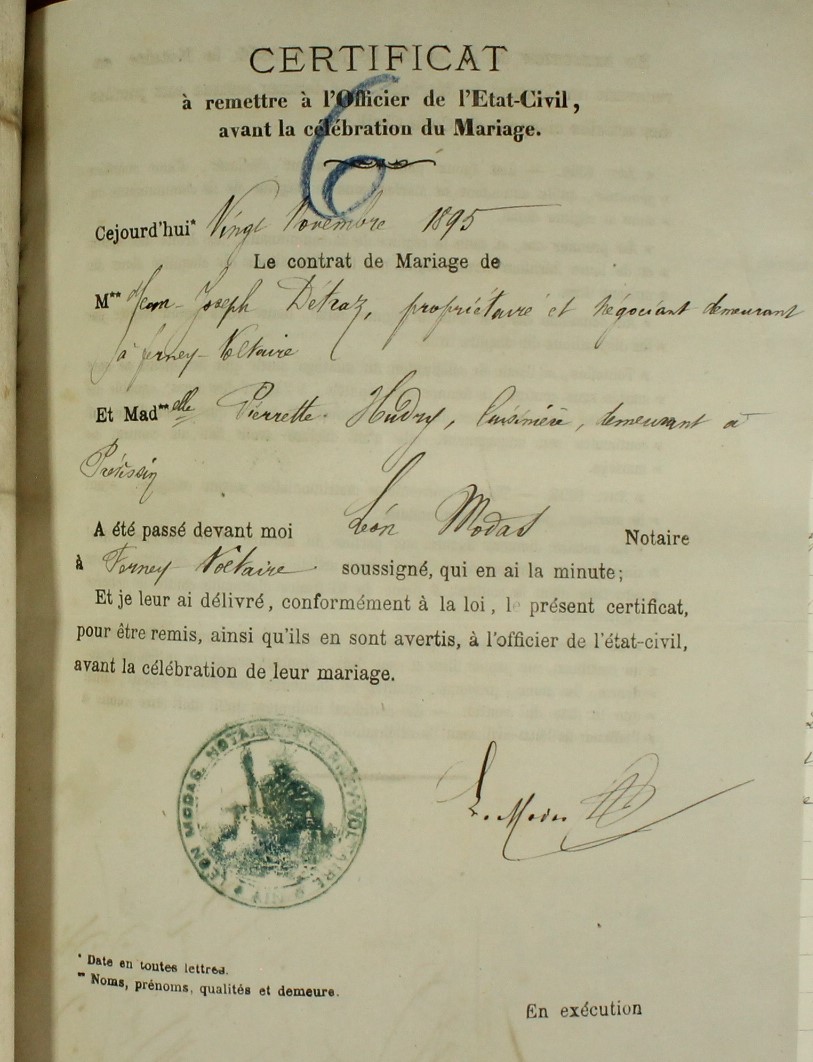 CERTIFICAT
à remettre à l'Officier de l'Etat-Civil,
avant la célébration du Mariage.
6
Cejourd'hui* Vingt Novembre 1895
Le contrat de Mariage de
M** Jean-Joseph Détraz, propriétaire et négociant demeurant
à ferney-Voltaire
Et Mad**elle Pierrette Hudry, Cuisinière, demeurant à
Prévessin
A été passé devant moi Léon Modas Notaire
à Ferney Voltaire soussigné, qui en ai la minute;
Et je leur ai délivré, conformément à la loi, le présent certificat,
pour être remis, ainsi qu'ils en sont avertis, à l'officier de l'état-civil,
avant la célébration de leur mariage.
LEON MODAS, NOTAIRE A FERNEY-VOLTAIRE
L. Modas
* Date en toutes lettres.
** Noms, prénoms, qualités et demeure.
En exécution